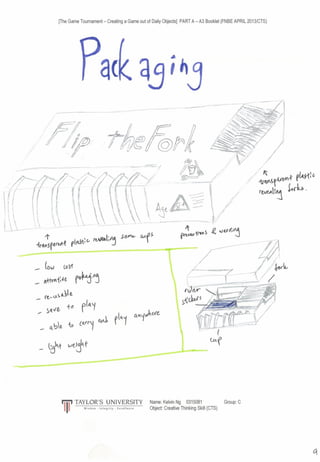 [The Game Tournament – Creating a Game out of Daily Objects] PART A – A3 Booklet (FNBE APRIL 2013/CTS)
Packaging
Flip theFork
transparent plastic
revealing forks.
transparent plastic revealing some cups
promotions & warning
- low cost
- attractive packaging
- re-usable
- save to play
- able to carry and play anywhere
- light weight
fork
ruler
stickers
cup
TAYLOR'S UNIVERSITY
Wisdom · Integrity · Excellence
Name: Kelvin Ng 0315081 Group: C
Object: Creative Thinking Skill (CTS)
9